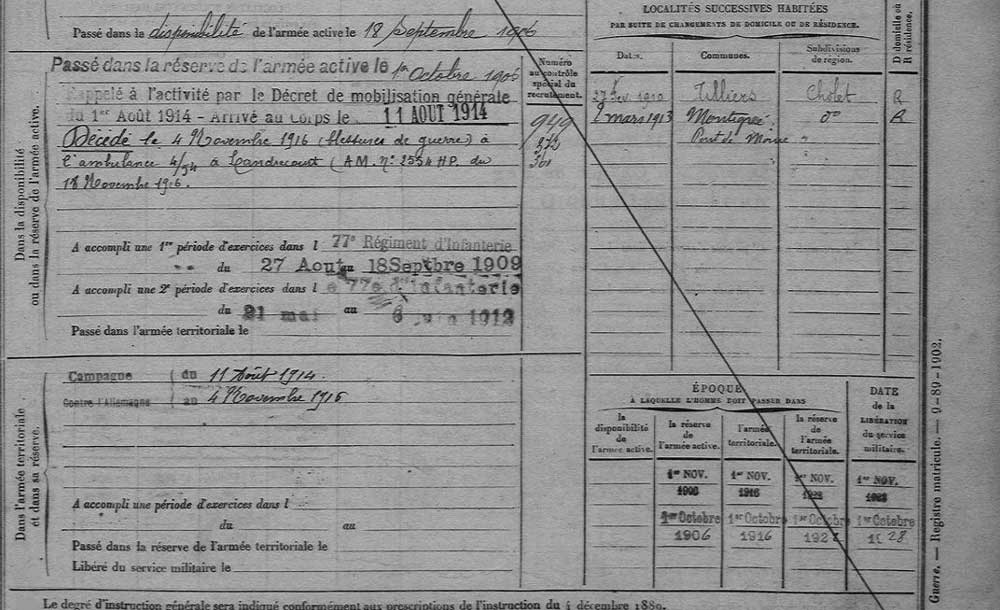 Passé dans la disponibilité de l'armée active le 18 Septembre 1906
Passé dans la réserve de l'armée active le 1er Octobre 1906
Rappelé à l'activité par le Décret de mobilisation générale
du 1er Août 1914 - Arrivé au Corps le 11 AOUT 1914
Décédé le 4 Novembre 1916 (blessures de guerre) à
l'ambulance 4/54 à Landrecourt (AM. n° 2554 HP. du
18 Novembre 1916.
Dans la disponibilité
ou dans la réserve de l'armée active.
A accompli une 1re période d'exercices dans l 77e Régiment d'Infanterie
du 27 Aout au 18 Septbre 1909
A accompli une 2e période d'exercices dans l e 77e d'Infanterie
du 21 mai au 6 juin 1912
Passé dans l'armée territoriale le
Numéro
au contrôle
spécial du
recrutement.
949
372
361
LOCALITÉS SUCCESSIVES HABITÉES
PAR SUITE DE CHANGEMENTS DE DOMICILE OU DE RÉSIDENCE.
Dates.
Communes.
Subdivisions
de région.
D domicile ou
R résidence.
27 fév 1910 Tilliers Cholet R
2 mars 1913 Montigné do R
Dans l'armée territoriale
et dans sa réserve.
Campagne du 11 Août 1914
Contre l'Allemagne au 4 Novembre 1916
A accompli une période d'exercices dans l
du au
Passé dans la réserve de l'armée territoriale le
Libéré du service militaire le
ÉPOQUE
À LAQUELLE L'HOMME DOIT PASSER DANS
DATE
de la
LIBÉRATION
du service
militaire.
la
disponibilité
de
l'armée active.
la réserve
de
l'armée active.
l'armée
territoriale.
la réserve
de
l'armée
territoriale.
1er NOV. 1er NOV. 1er NOV. 1er NOV.
1906 1916
1er Octobre 1er Octobre 1er Octobre 1er Octobre
1906 1916 1922 1928
Guerre. — Registre matricule. — 9-89-1902.
Le degré d'instruction générale sera indiqué conformément aux prescriptions de l'instruction du 4 décembre 1889.